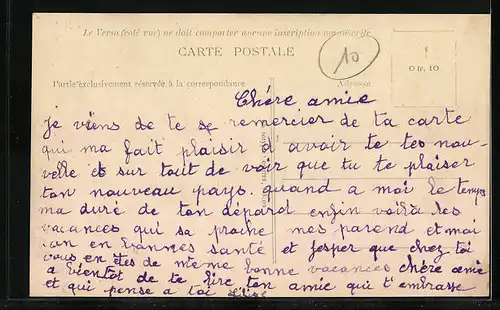 Le Verso (côté vue) ne doit comporter aucune inscription manuscrite
CARTE POSTALE
10
0 fr. 10
Partie exclusivement réservée à la correspondance
Adresse
Chére amie
Je viens de te remercier de ta carte
qui ma fait plaisir d'avoir te tes nou-
velle et sur tout de voir que tu te plaiser
ton nouveau pays. quand a moi le temps
ma duré de ton départ enfin voilà les
vacances qui sa proche mes parend et moi
son en bonnes santé et jesper que chez toi
vous en êtes de même bonne vacances chére amie
a bientot de te lire ton amie qui t'embrasse
et qui pense a toi